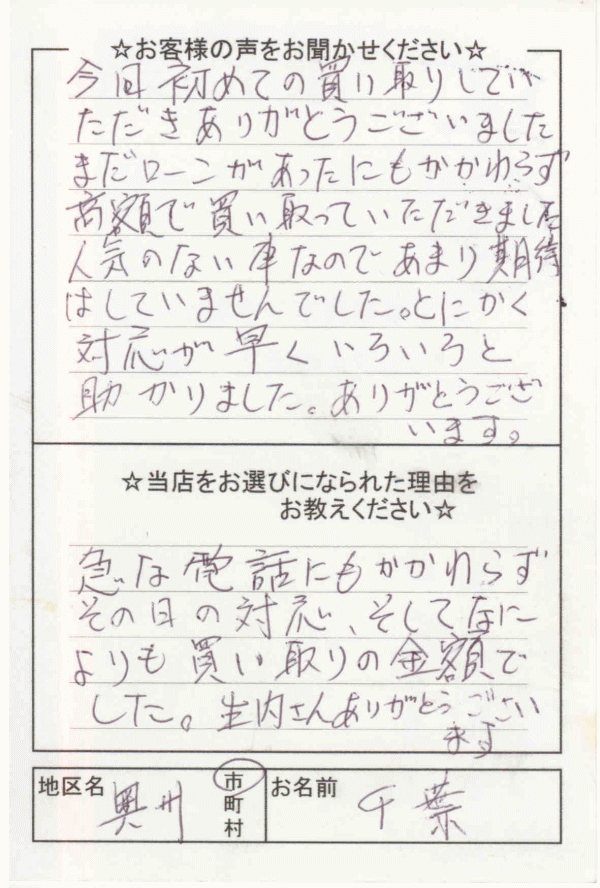 ☆お客様の声をお聞かせください☆
今回初めての買い取りしてい
ただきありがとうございました
まだローンがあったにもかかわらず
高額で買い取っていただきました
人気のない車なのであまり期待
はしていませんでした。とにかく
対応が早くいろいろと
助かりました。ありがとうござ
います。
☆当店をお選びになられた理由を
お教えください☆
急な電話にもかかわらず
その日の対応、そしてなに
よりも買い取りの金額で
した。生内さんありがとうござい
ます
地区名 奥州 市町村 お名前 千葉